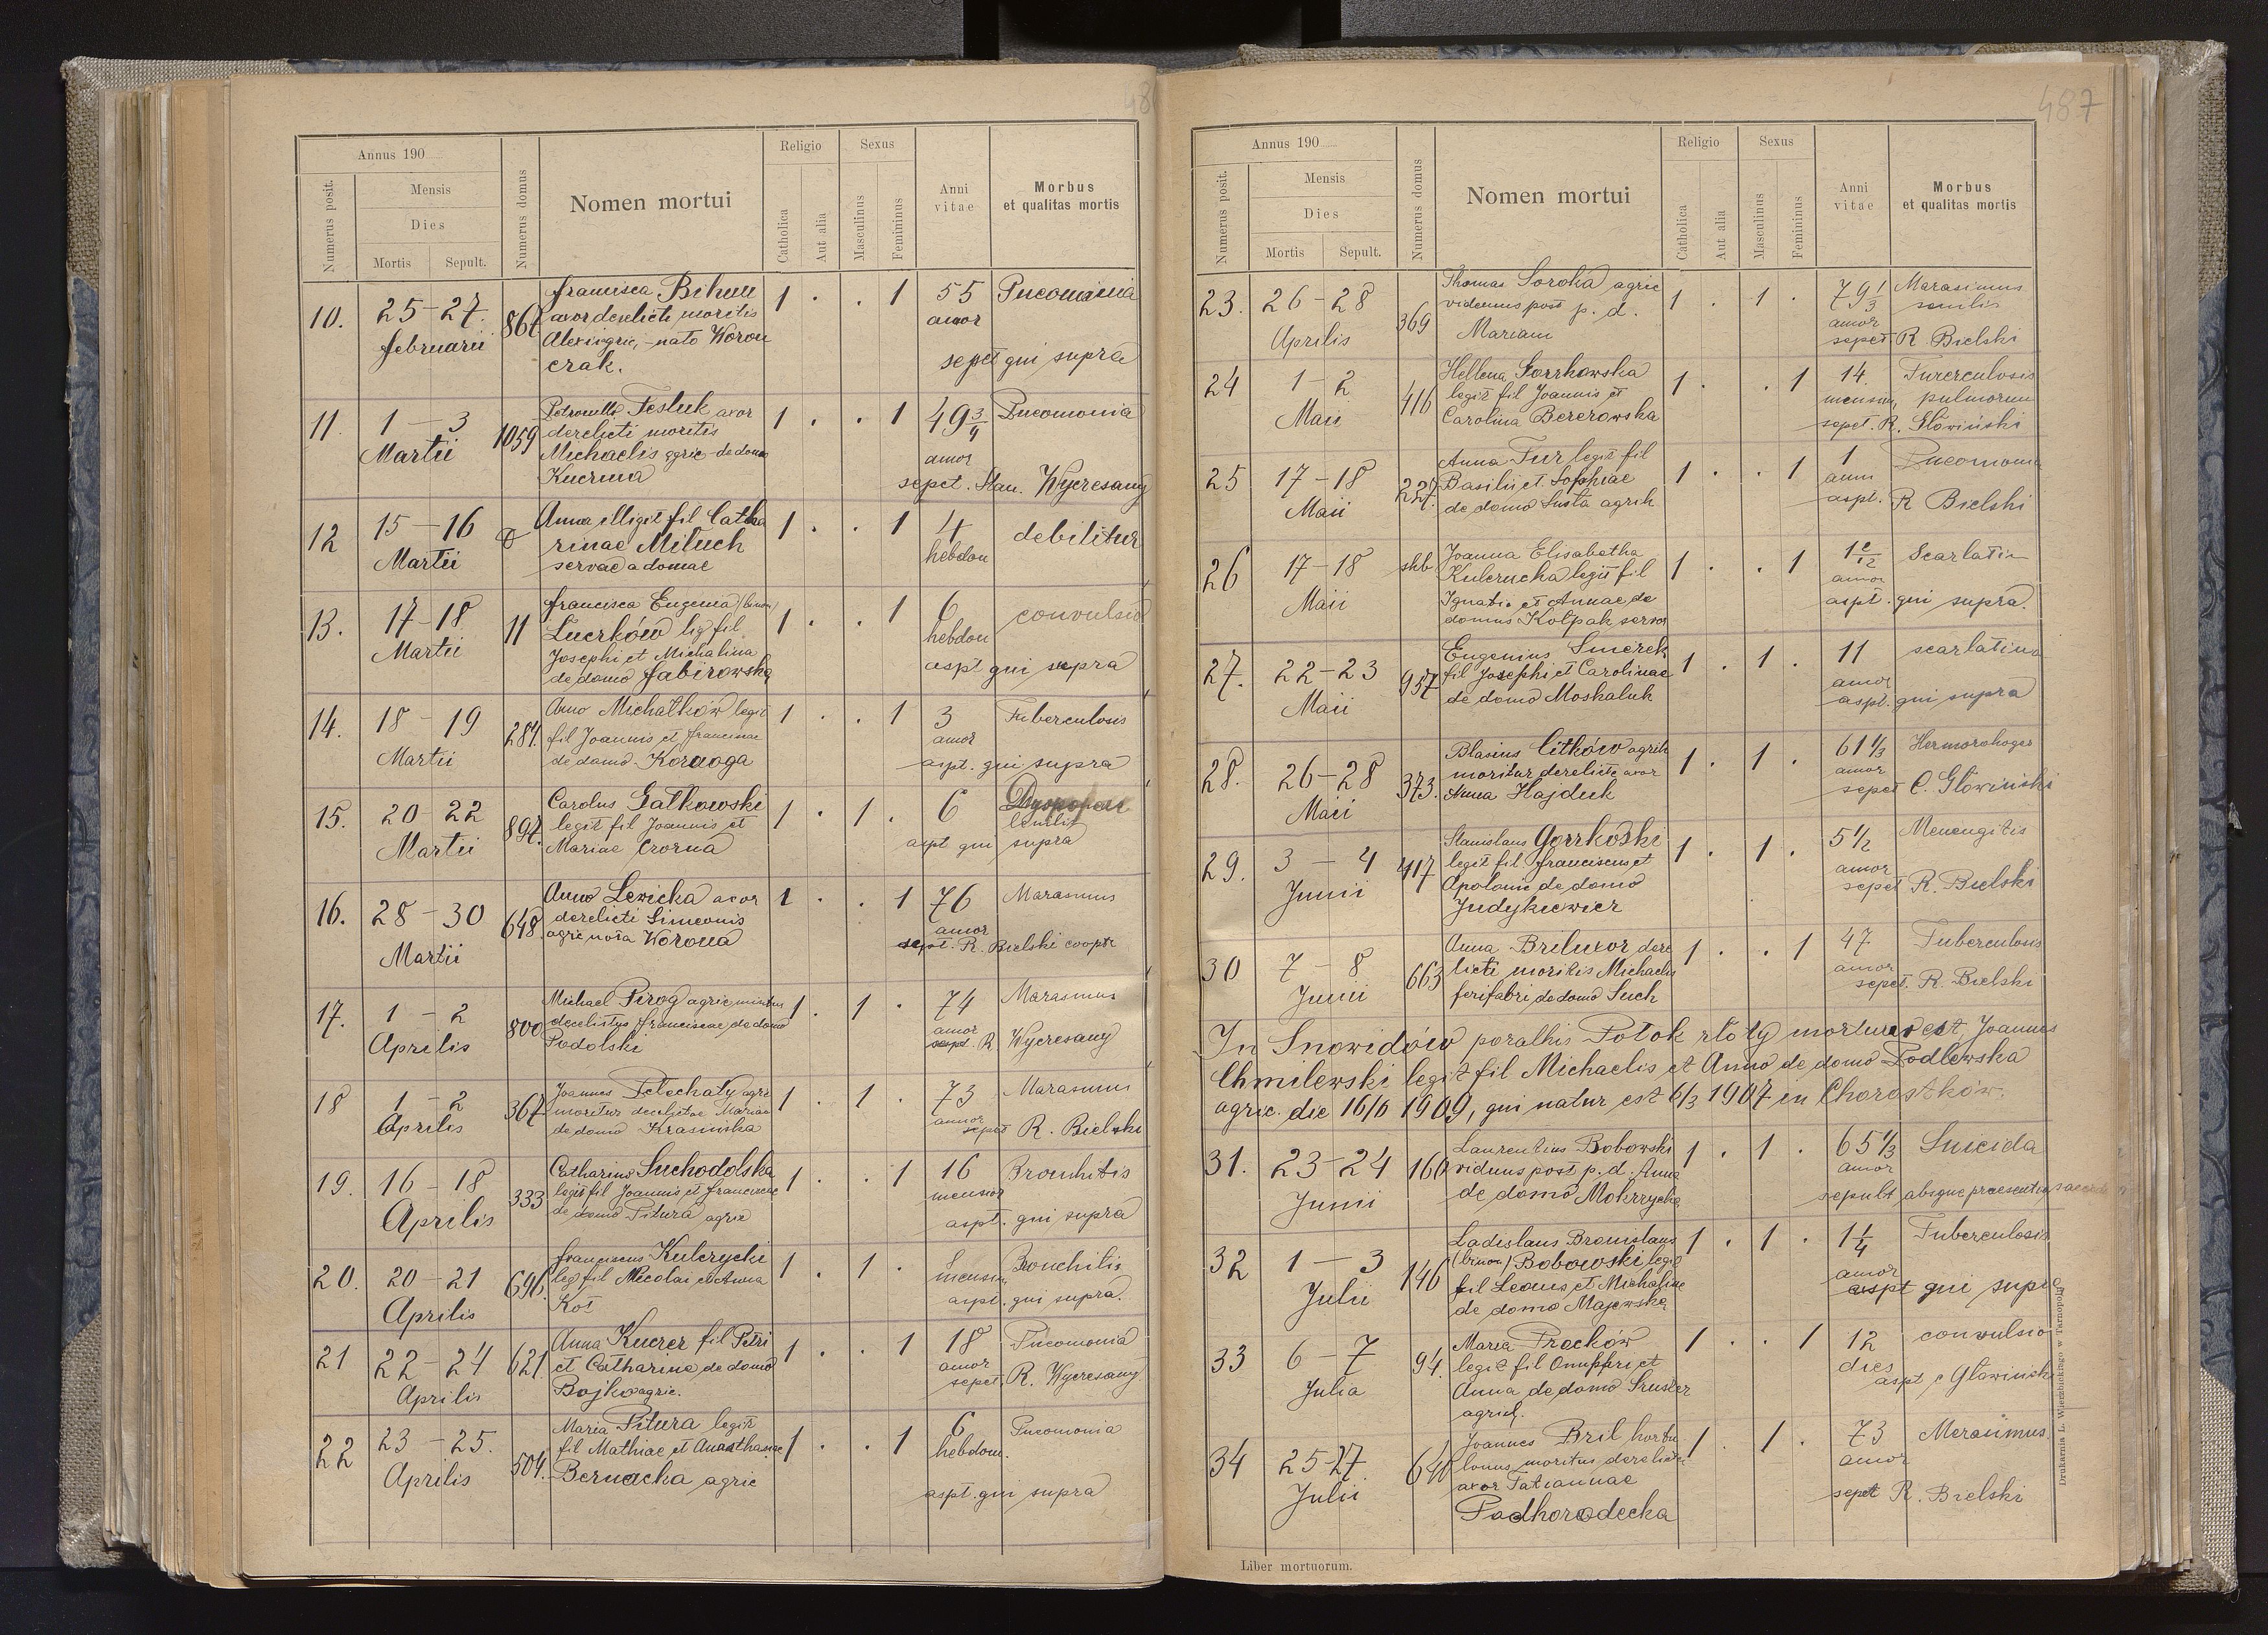 487
Annus 190
Numerus posit.
Mensis
Dies
Mortis Sepult.
Numerus domus
Nomen mortui
Religio
Catholica
Aut alia
Sexus
Masculinus
Femininus
Anni vitae
Morbus et qualitas mortis
10. 25-27. februarii 867
francisca Bihun
uxor derelicti moritis
Alexii agric, - nata Woron
crak.
1 . . 1 55 Pneomania
sepet qui supra
11. 1-3 Martii 1059
Petronella Tesluk uxor
derelicti moritis
Michaelis agric - de domo
Kucrma
1 . . 1 49 3/4 Pneomonia
sepet. Stan. Wycresany
12 15-16 Martii
Anna illigit fil Catha
rinae Miluch
servae a domae
1 . . 1 4 hebdom debilitus
13. 17-18 Martii 11
francisca Eugenia (binom)
Lucrków lig fil
Josephi et Michalina
de domo fabirowska
1 . . 1 6 hebdom convulsio
aspt qui supra
14. 18-19 Martii 284.
Anna Michałków legit
fil Joannis et franciscae
de domo Koraoga
1 . . 1 3 Tuberculosis
aspt. qui supra
15. 20-22 Martii 897.
Carolus Gatkowski
legit fil Joannis et
Mariae Crorna
1 . 1 . 6
aspt qui supra
16. 28-30 Martii 648.
Anna Lewicka uxor
derelicti Simeonis
agric nata Worona
1 . . 1 76 Marasmus
sept. R. Bielski cooptr
17. 1-2 Aprilis 800
Michael Pirog agric
derelictus franciscae de domo
Podolski
1 . 1 . 74 Marasmus
sept. R Wycresany
18 1-2 Aprilis 367
Joannes Petechaty agri
moritur derelictae Mariae
de domo Krasinska
1 . 1 . 73 Marasmus
sepet R. Bielski
19. 16-18 Aprilis 333
Catharina Suchodolska
legit fil Joannis et franciscae
de domo Pitura agric
1 . . 1 16 mensior Bronhitis
aspt. qui supra
20. 20-21 Aprilis 696.
franciscus Kulcrycki
leg fil Nicolai et Anna
Kot
1 . 1 . Bronchitis
aspt. qui supra.
21 22-24 Aprilis 621.
Anna Kucrer fil Petri
et Catharina de domo
Bojko agric.
1 . . 1 18 Pneomonia
sepet. R. Wycresany
22 23-25. Aprilis 504.
Maria Pitura legit
fil Mathiae et Anasthasiae
Bernacka agric
1 . . 1 6 hebdom. Pneomonia
aspt. qui supra
Annus 190
Numerus posit.
Mensis
Dies
Mortis Sepult.
Numerus domus
Nomen mortui
Religio
Catholica
Aut alia
Sexus
Masculinus
Femininus
Anni vitae
Morbus et qualitas mortis
23. 26-28 Aprilis 369
Thomas Soroka agric
viduus post p. d.
Mariam
1 . 1 . 79 1/3 Marasimus senilis
sepet R. Bielski
24 1-2 Maii 416
Hellena Gorrkowska
legit fil Joannis et
Carolina Bererowska
1 . . 1 14. mensium Turerculosis pulmorum
sepet. R. Głowiński
25 17-18 Maii 227.
Anna Tur legit fil
Basilii et Sophiae
de domo Susta agrik
1 . . 1 1 anni Pneomonia
aspt. R Bielski
26 17-18 Maii
Joanna Elisabetha
Kulcrucka legit fil
Ignatio et Annae de
domus Kolpak
1 . . 1 1 2/12 Scarlatin
aspt. qui supra.
27. 22-23 Maii 957
Eugenius Smerek
fil Josephi et Carolinae
de domo Moskaluk
1 . 1 . 11 scarlatina
aspt. qui supra
28. 26-28 Maii 373.
Blasius Citków agrik
moritur derelicte uxor
Anna Hajduk
1 . 1 . 61 1/3 Hermorohoger
sepet C. Głowiński
29. 3-4 Junii 417
Stanislaus Gorrkoski
legit fil franciscus et
Apolonie de domo
Judykiewicr
1 . 1 . 5 1/2 Menengitis
sepet R. Bielski
30 7-8 Junii 663
Anna Bril uxor dere
licti moritis Michaelis
ferifabri de domo Such
1 . . 1 47 Tuberculosis
sepet. R. Bielski
In Snowidów poralhis Potok rłoty mortuus est Joannes
Chmilewski legit fil Michaelis et Anna de domo Podlewska
agric. die 16/6 1909, qui natur est 6/3 1907 in Chorostków.
31. 23-24 Junii 160
Laurentius Bobowski
viduus post p. d. Anna
de domo Mokrrycka
1 . 1 . 65 1/3 Suicida
sepult absque praesentia
32 1-3 Julii 146
Ladislaus Bronislaus
(binom) Bobowski legit
fil Leonis et Michalinae
de domo Majewska
1 . 1 . 1 1/4 Tuberculosis
aspt qui supra
33 6-7 Julia 94.
Maria Prockòw
legit fil Onuphri et
Anna de domo Sruster
agricl.
1 . . 1 12 dies convulsio
aspt c Głowinski
34 25-27. Julii 640
Joannes Bril hortu
lanus moritus derelicti
uxor Tatiannae
Podhorodecka
1 . 1 . 73 Merasimus.
sepet R. Bielski
Liber mortuorum.
Drukarnia L. Wierzbickiego w Tarnopolu